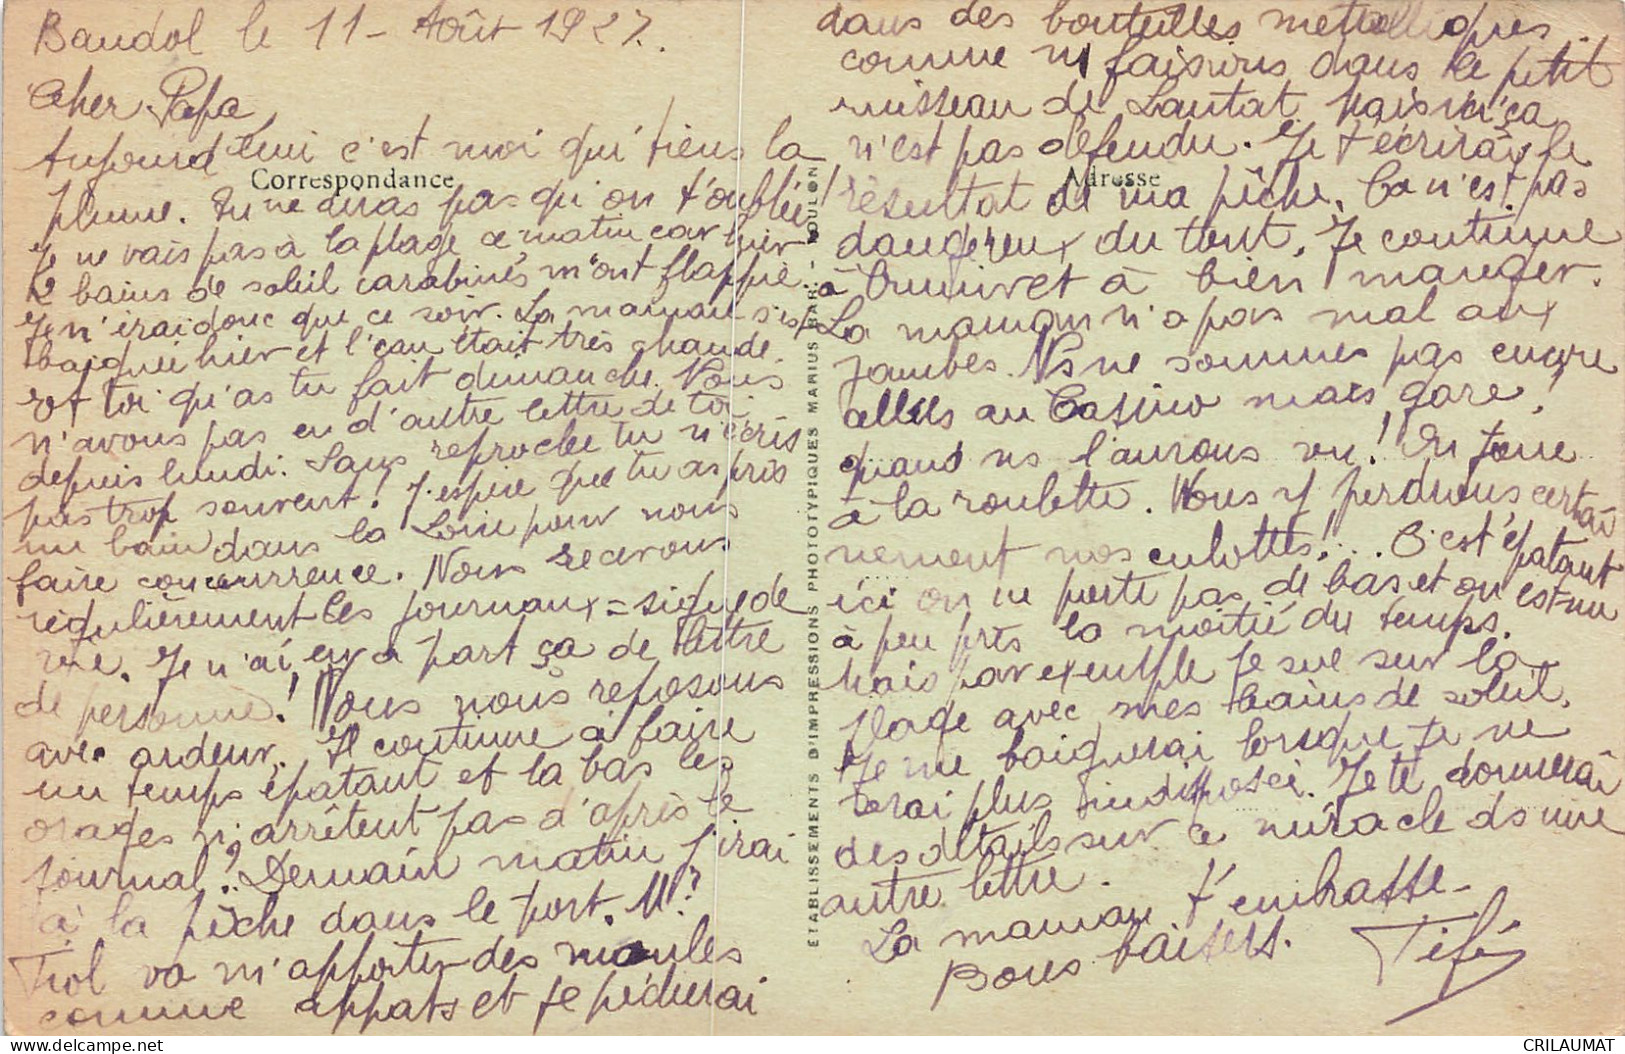 Bandol le 11 - Août 1927.
Cher Papa
Aujourd'hui c'est moi qui tiens la
Correspondance
plume. Tu ne diras pas qu'on t'oublie!
Je ne vais pas à la plage ce matin car hier
les bains de soleil carabinés m'ont flappie.
Je n'irai donc que ce soir. La maman s'est
baignée hier et l'eau était très chaude.
Et toi qu'as tu fait dimanche. Nous
n'avons pas eu d'autre lettre de toi
depuis lundi. Sans reproche tu n'écris
pas trop souvent! J'espère que tu as pris
un bain dans la Loire pour nous
faire concurrence. Nous recevons
régulièrement les journaux = signe de
vie. Je n'ai eu à part ça de lettre
de personne! Nous nous reposons
avec ardeur. Il continue à faire
un temps épatant et là bas les
orages n'arrêtent pas d'après le
journal! Demain matin j'irai
à la pêche dans le port. Mr?
Triol va m'apporter des moules
comme appats et je pêcherai
ÉTABLISSEMENTS D'IMPRESSIONS PHOTOTYPIQUES MARIUS BAR - TOULON
dans des bouteilles métalliques
comme ns faisions dans le petit
ruisseau de Lautat. Mais ici ça
n'est pas défendu. Je t'écrirai le
Adresse
résultat de ma pêche. Ça n'est pas
dangereux du tout. Je continue
à bien manger.
La maman n'a pas mal aux
jambes. Ns ne sommes pas encore
allées au Casino mais gare!
quand ns l'aurons vu! On joue
à la roulette. Nous y perdrons certai
nement nos culottes!... C'est épatant
ici on ne porte pas de bas et on est nu
à peu près la moitié du temps.
Mais par exemple je sue sur la
plage avec mes bains de soleil.
Je me baignerai lorsque je ne
serai plus indisposée. Je te donnerai
des détails sur ce miracle ds une
autre lettre.
La maman t'embrasse -
Bons baisers. Fifi
CRILAUMAT